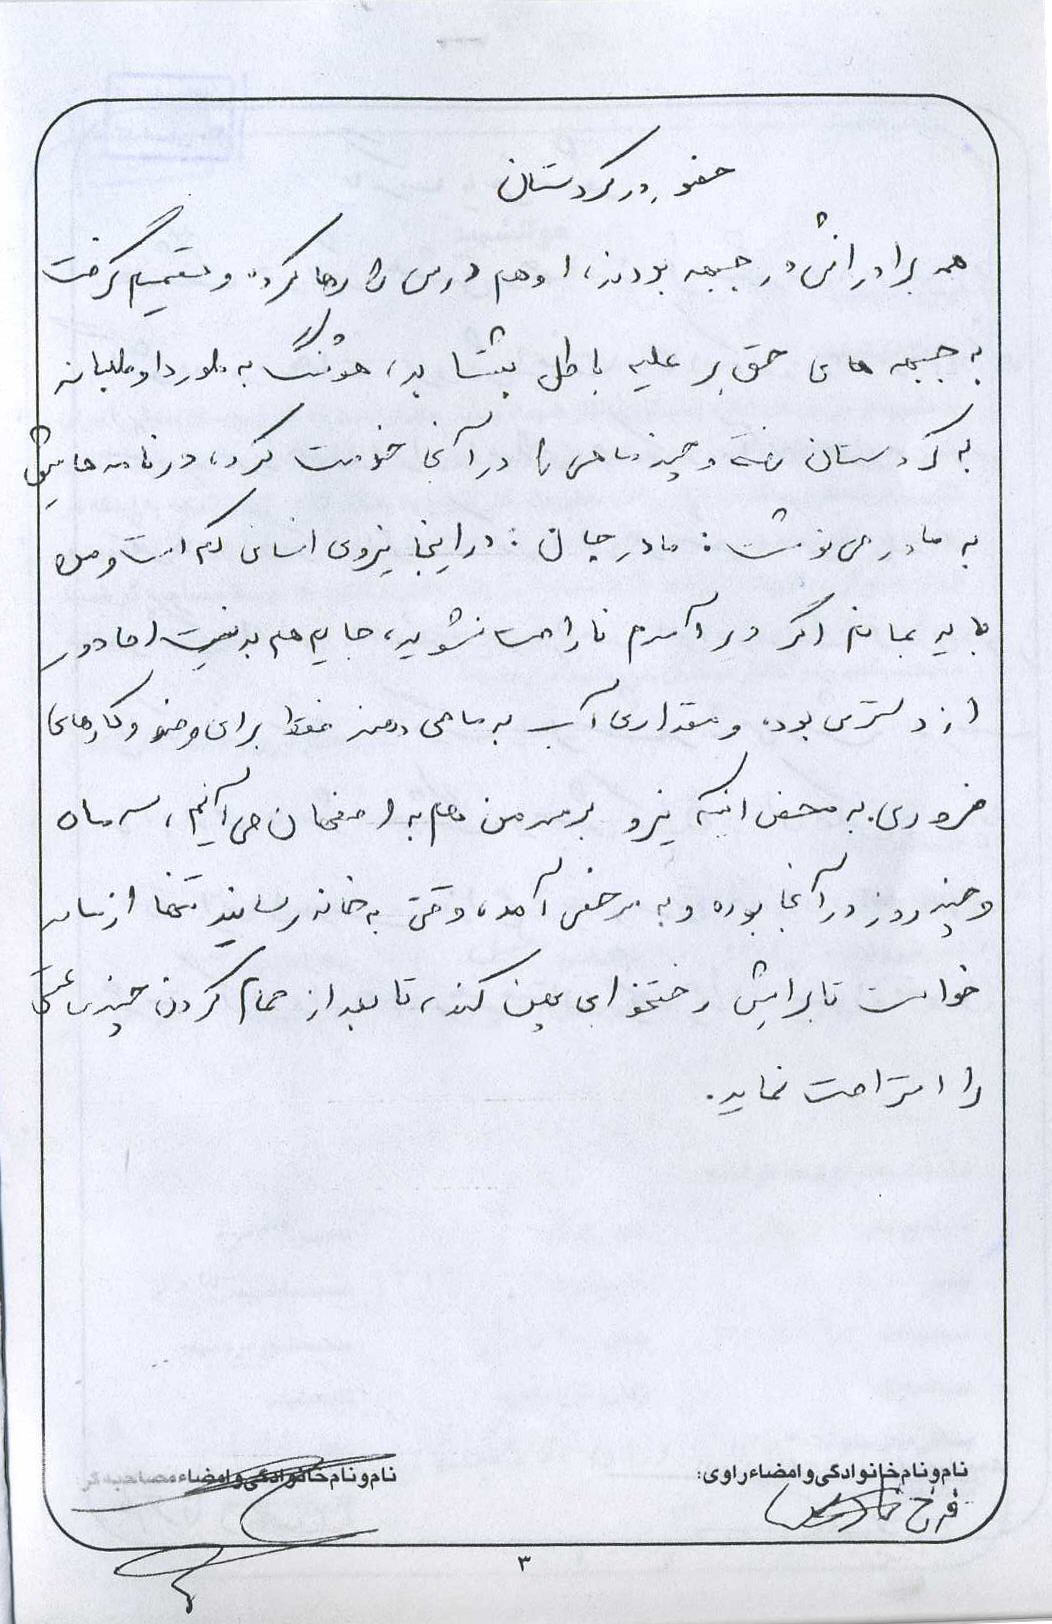 حضور در کردستان
همه برادرانش در جبهه بودند، او هم درس را رها کرده و تصمیم گرفت
به جبهه های حق بر علیه باطل بشتابد، هوشنگ به طور داوطلبانه
به کردستان رفته و چند ماهی را در آنجا خدمت کرد، در نامه هایش
به مادر می نوشت: مادر جان: در اینجا نیروی انسانی کم است و من
باید بمانم اگر دیر آمدم ناراحت نشوید، جایم هم بد نیست اما دور
از دسترس بود، و مقداری آب به ما می دهند فقط برای وضو و کارهای
ضروری. به محض اینکه نیرو برسد من هم به اصفهان می آیم، سه ماه
و چند روز در آنجا بوده و به مرخصی آمد، وقتی به خانه رسانید تنها از مادر
خواست تا برایش رختخوابی پهن کند، تا بعد از حمام کردن چند ساعتی
را استراحت نماید.
نام و نام خانوادگی و امضاء راوی:
فرخ
نام و نام خانوادگی و امضاء مصاحبه گر:
۳